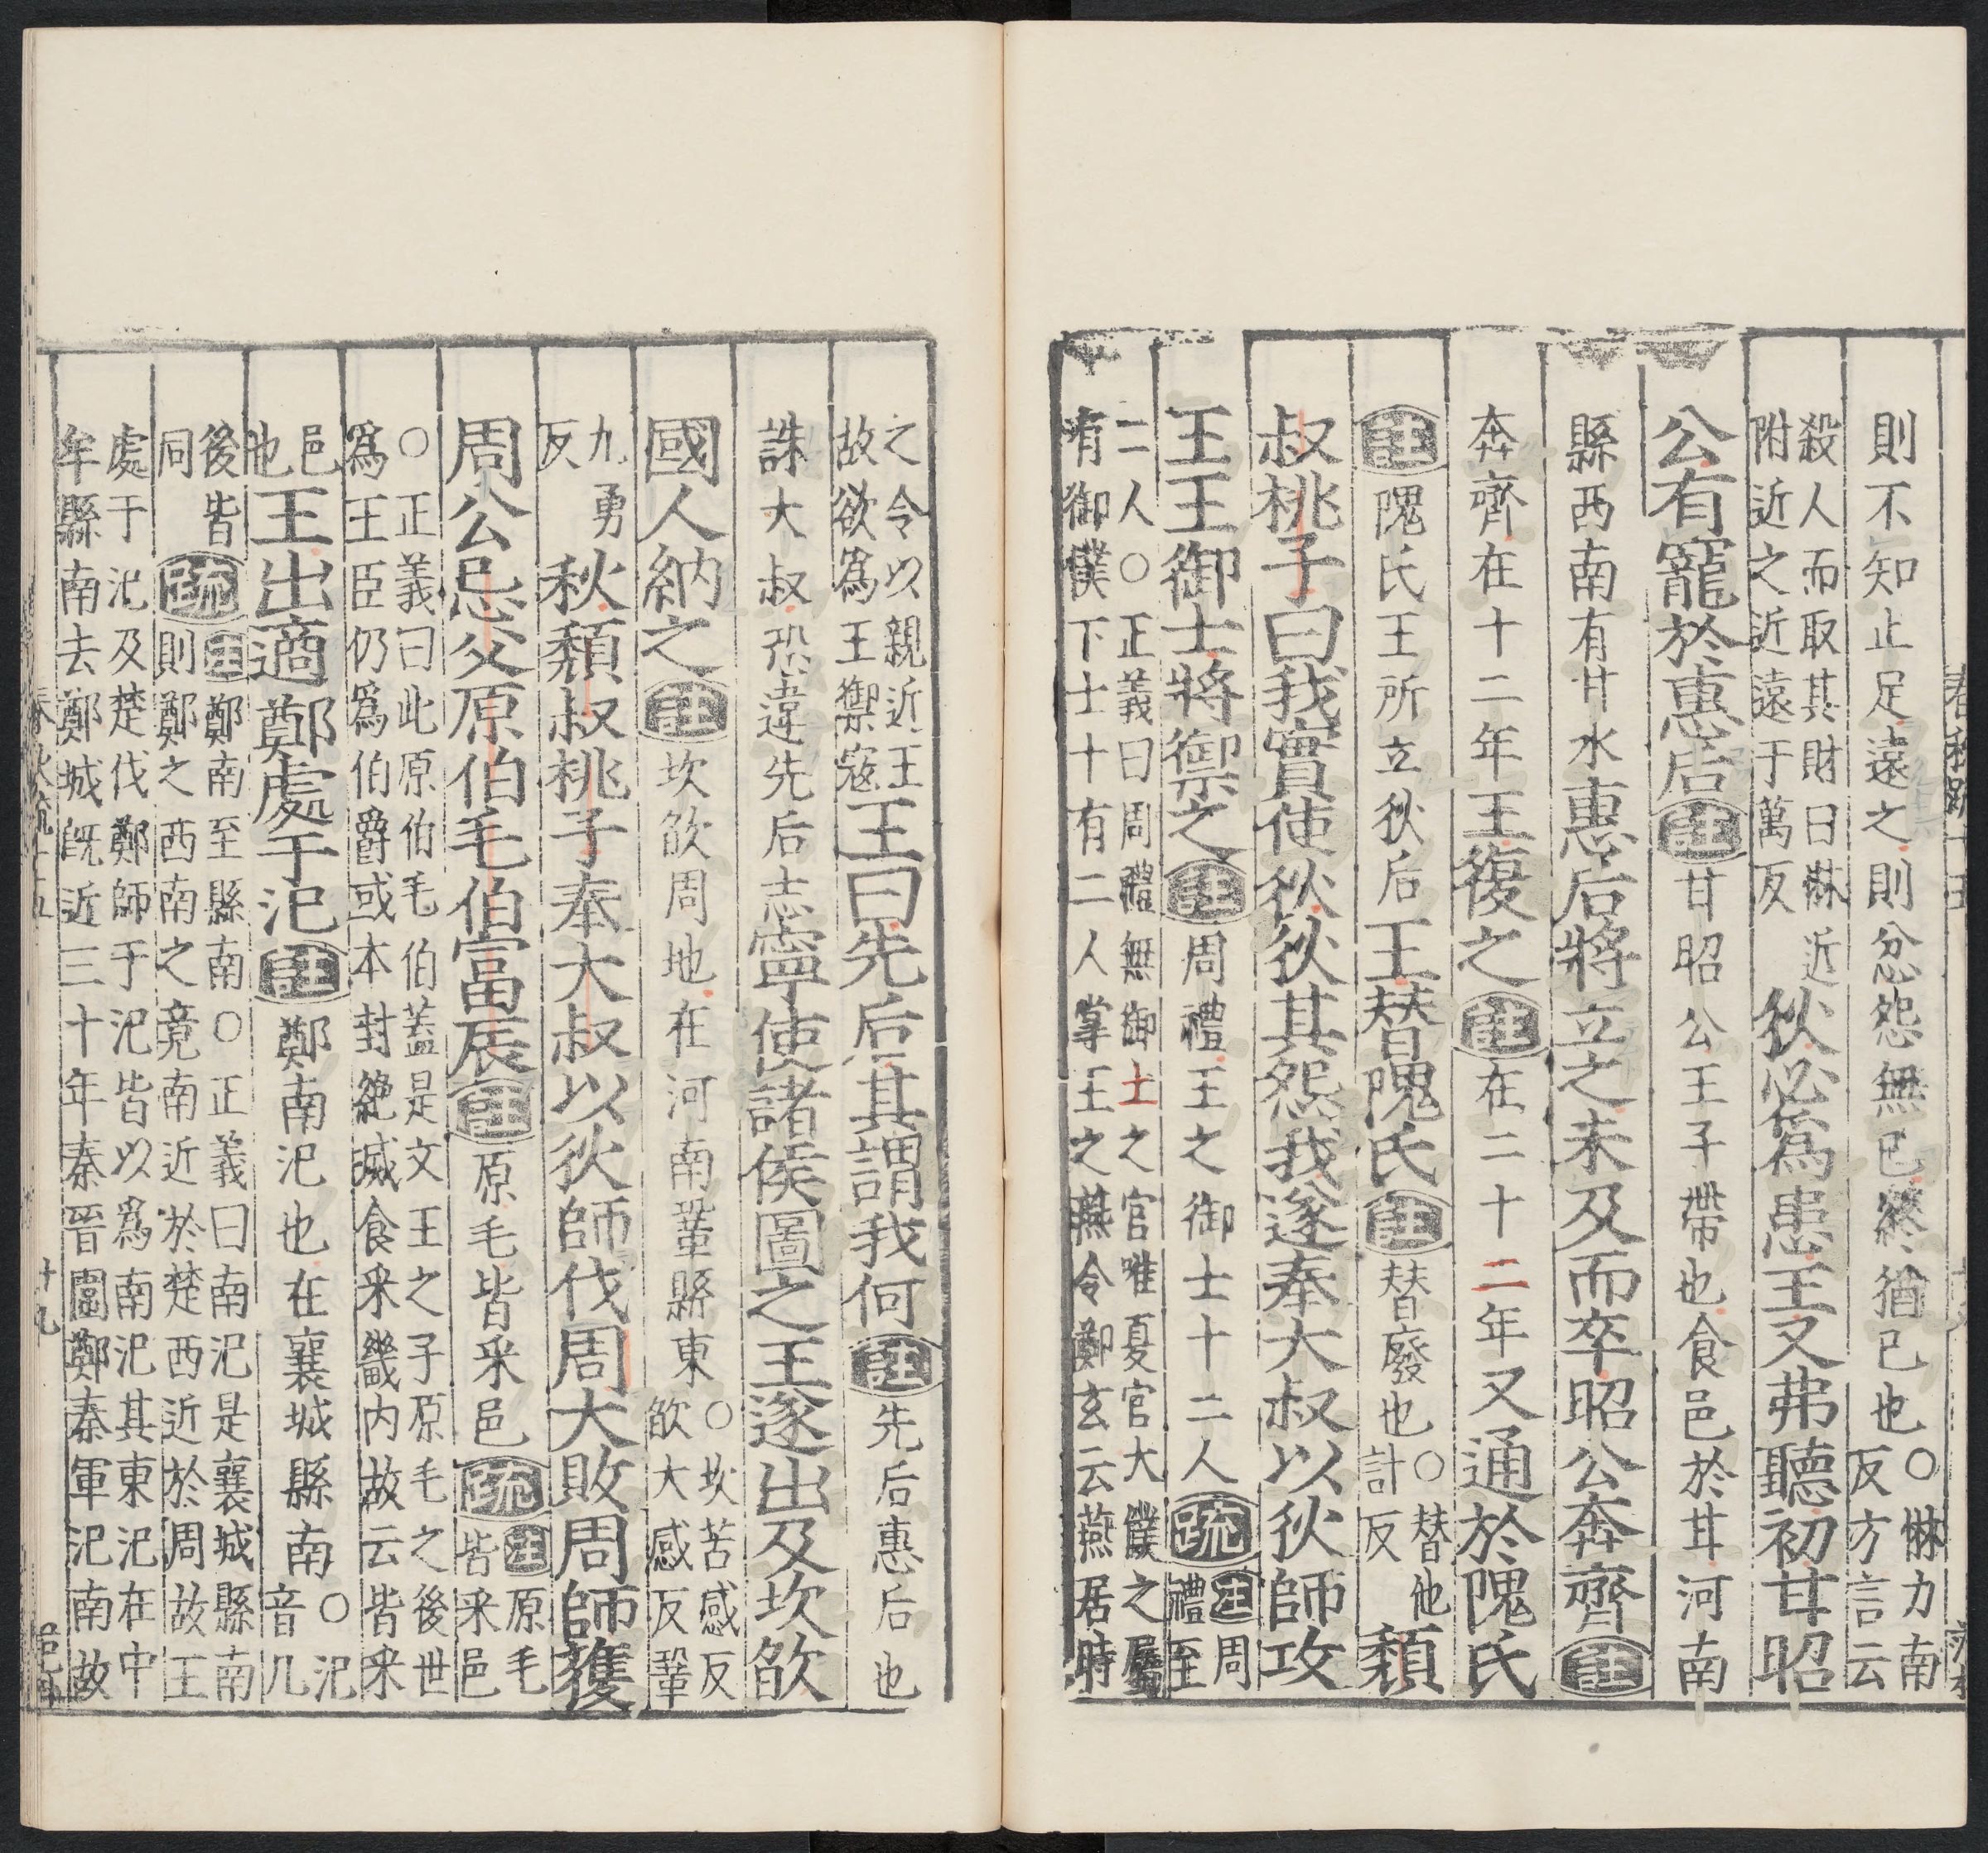 則不知止足遠之則忿怨無已終猶已也○惏力南反方言云
殺人而取其財曰惏近附近之近遠于萬反狄必爲患王又弗聽初甘昭
公有寵於惠后註甘昭公王子帶也食邑於甘河南
縣西南有甘水惠后將立之未及而卒昭公奔齊註
奔齊在十二年王復之註在二十二年又通於隗氏
註隗氏王所立狄后王替隗氏註替廢也○替他計反頹
叔桃子曰我實使狄狄其怨我遂奉大叔以狄師攻
王王御士將禦之註周禮王之御士十二人疏註周禮至
二人○正義曰周禮無御士之官唯夏官大僕之屬
有御僕下士十有二人掌王之燕令鄭玄云燕居時
之令以親近王故欲爲王禦寇王曰先后其謂我何註先后惠后也
誅大叔恐違先后志寧使諸侯圖之王遂出及坎欿
國人納之註坎欿周地在河南鞏縣東○坎苦感反欿大感反鞏
九勇反秋頹叔桃子奉大叔以狄師伐周大敗周師獲
周公忌父原伯毛伯富辰註原毛皆采邑疏註原毛皆采邑
○正義曰此原伯毛伯蓋是文王之子原毛之後世
爲王臣仍爲伯爵或本封絶滅食采畿内故云皆采
邑也王出適鄭處于氾註鄭南氾也在襄城縣南○氾音凡
後皆同疏註鄭南至縣南○正義曰南氾是襄城縣南則鄭之西南之竟南近於楚西近於周故王
處于氾及楚伐鄭師于氾皆以爲南氾其東氾在中
牟縣南去鄭城既近三十年秦晉圍鄭秦軍氾南故